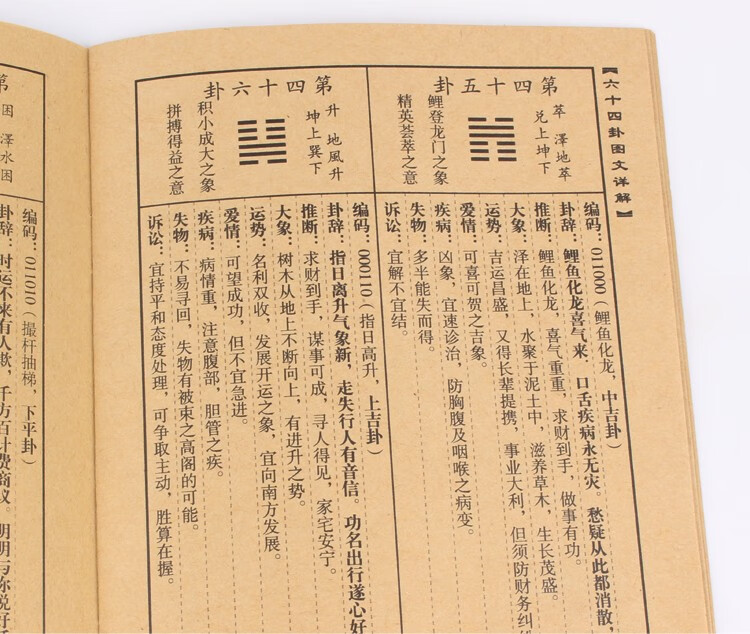 【六十四卦图文详解】
第四十五卦
萃 澤地萃
兑上坤下
鲤登龙门之象
精英荟萃之意
编码：011000（鲤鱼化龙，中吉卦）
卦辞：鲤鱼化龙喜气来，口舌疾病永无灾。愁疑从此都消散，
推断：鲤鱼化龙，喜气重重，求财到手，做事有功。
大象：泽在地上，水聚于泥土中，滋养草木，生长茂盛。
运势：吉运昌盛，又得长辈提携，事业大利，但须防财务纠
爱情：可喜可贺之吉象。
疾病：凶象，宜速诊治，防胸腹及咽喉之病变。
失物：多半能失而得。
诉讼：宜解不宜结。
第四十六卦
升 地風升
坤上巽下
积小成大之象
拼搏得益之意
编码：000110（指日高升，上吉卦）
卦辞：指日离升气象新，走失行人有音信。功名出行遂心好
推断：求财到手，谋事可成，寻人得见，家宅安宁。
大象：树木从地上不断向上，有进升之势。
运势：名利双收，发展开运之象，宜向南方发展。
爱情：可望成功，但不宜急进。
疾病：病情重，注意腹部，胆管之疾。
失物：不易寻回，失物有被束之高阁的可能。
诉讼：宜持平和态度处理，可争取主动，胜算在握。
第
困 澤水困
编码：011010（撮杆抽梯，下平卦）
卦辞：时运不来有人欺，千方百计费商议。明明与你说好